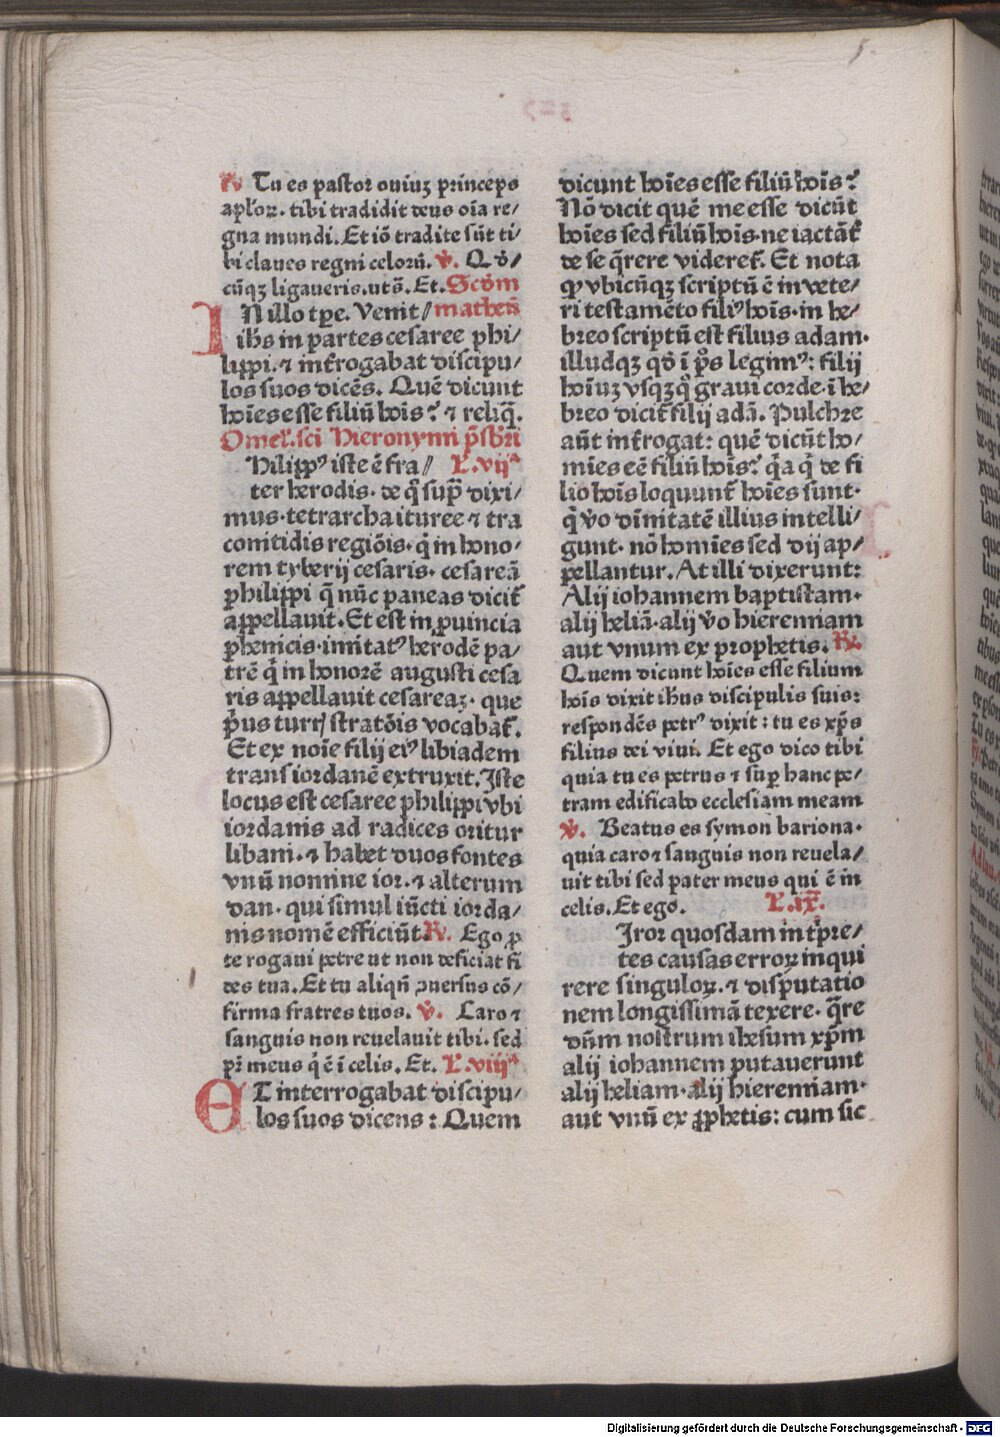 ℟. Tu es pastor ouiuꝫ princeps
apl̓oꝝ. tibi tradidit deus oīa re/
gna mundi. Et iō tradite sūt ti/
bi claues regni celorū. ℣. Qd̓/
cūqꝫ ligaueris.utS̄. Et. Scd̓m
IN illo tꝑe. Venit// matheū
ihs̄ in partes cesaree phi/
lippi. ⁊ int̓rogabat discipu/
los suos dicēs. Quē dicunt
hoīes esse filiū hoīs? ⁊ reliq̄.
Omel̓. sci Hieronymi p̄sbr̄i
hilippꝰ iste ē fra// L̓.vijᵃ
ter herodis. de q̊ sup̄ dixi/
mus. tetrarcha ituree ⁊ tra
conitidis regiōis. q̇ in hono/
rem tyberij cesaris. cesareā
philippi q̄ nūc paneas dicit̓
appellauit. Et est in ꝓuincia
phenicis. imitatꝰ herodē pa/
trē q̇ in honorē augusti cesa
ris appellauit cesareaꝫ. que
p̓us turrꝭ stratōis vocabat̓.
Et ex noīe filij eiꝰ libiadem
trans iordanē extruxit. Iste
locus est cesaree philippi vbi
iordanis ad radices oritur
libani. ⁊ habet duos fontes
vnū nomine ior. ⁊ alterum
dan. qui simul iūcti iorda/
nis nomē efficiūt. ℟. Ego ꝓ
te rogaui petre ut non deficiat fi
des tua. Et tu aliqn̄ ꝯuersus cō/
firma fratres tuos. ℣. Caro ⁊
sanguis non reuelauit tibi. sed
pr̄ meus q̇ ē ī celis. Et. L̓.viijᵃ
ET interrogabat discipu/
los suos dicens: Quem
dicunt hoīes esse filiū hoīs?
Nō dicit quē me esse dicūt
hoīes sed filiū hoīs. ne iactāt̓
de se q̄rere videret̓. Et nota
ꝙ vbicūqꝫ scriptū ē in vete/
ri testamēto filiꝰ hoīs. in he/
breo scriptū est filius adam.
illudqꝫ qd̓ ī pꝭ̄s legimꝰ: filij
hoīuꝫ vsqꝫq̊ graui corde. ī he/
breo dicit̓ filij adā. Pulchre
aūt int̓rogat: quē dicūt ho/
mīes eē filiū hoīs? q̇a q̇ de fi
lio hoīs loquunt̓ hoīes sunt.
q̇ v̓o diuītatē illius intelli/
gunt. nō homīes sed dij ap/
pellantur. At illi dixerunt:
Alij iohannem baptistam.
alij heliā. alij v̓o hieremiam
aut vnum ex prophetis. ℟.
Quem dicunt hoīes esse filium
hoīs dixit ihus discipulis suis:
respondēs petrꝰ dixit: tu es xp̄s
filius dei viui. Et ego dico tibi
quia tu es petrus ⁊ suꝑ hanc pe/
tram edificabo ecclesiam meam
℣. Beatus es symon bariona.
quia caro ⁊ sanguis non reuela/
uit tibi sed pater meus qui ē in
celis. Et ego. L̓.ixᵃ.
Iror quosdam int̓pre/
tes causas erroꝝ inqui
rere singuloꝝ. ⁊ disputatio
nem longissimā texere. q̄re
dn̄m nostrum ihesum xp̄m
alij iohannem putauerunt
alij heliam. alij hieremiam.
aut vnū ex ꝓphetis: cum sic
Digitalisierung gefördert durch die Deutsche Forschungsgemeinschaft - DFG